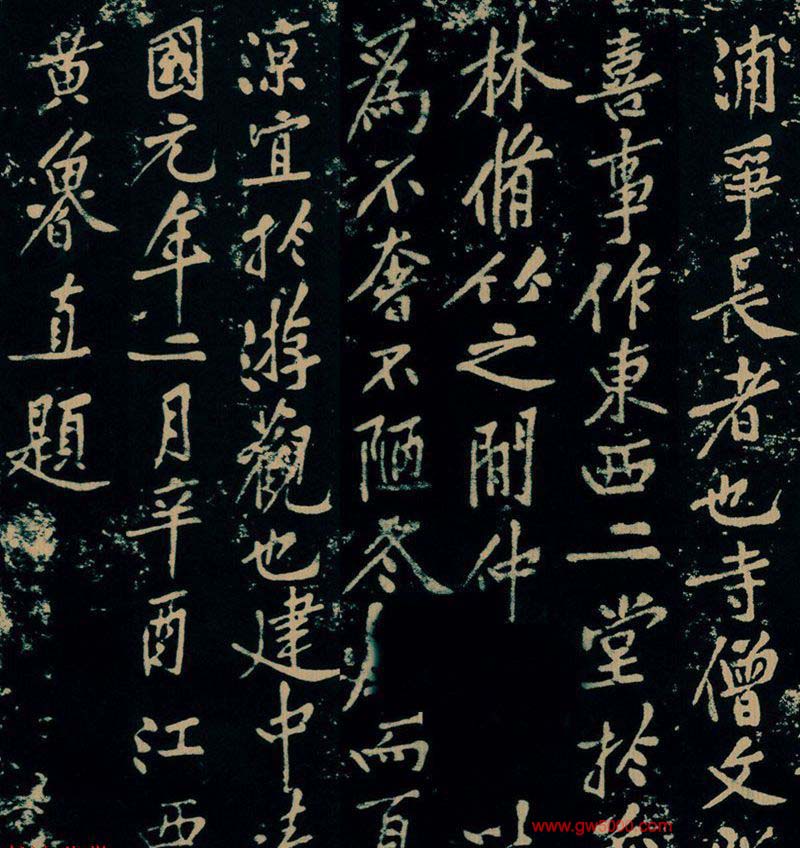 浦爭長者也寺僧文
喜事作東西二堂於
林脩竹之間仲以
為不奢不陋冬而
涼宜於游觀也建中
國元年二月辛酉江西
黄魯直題
www.gw5000.com